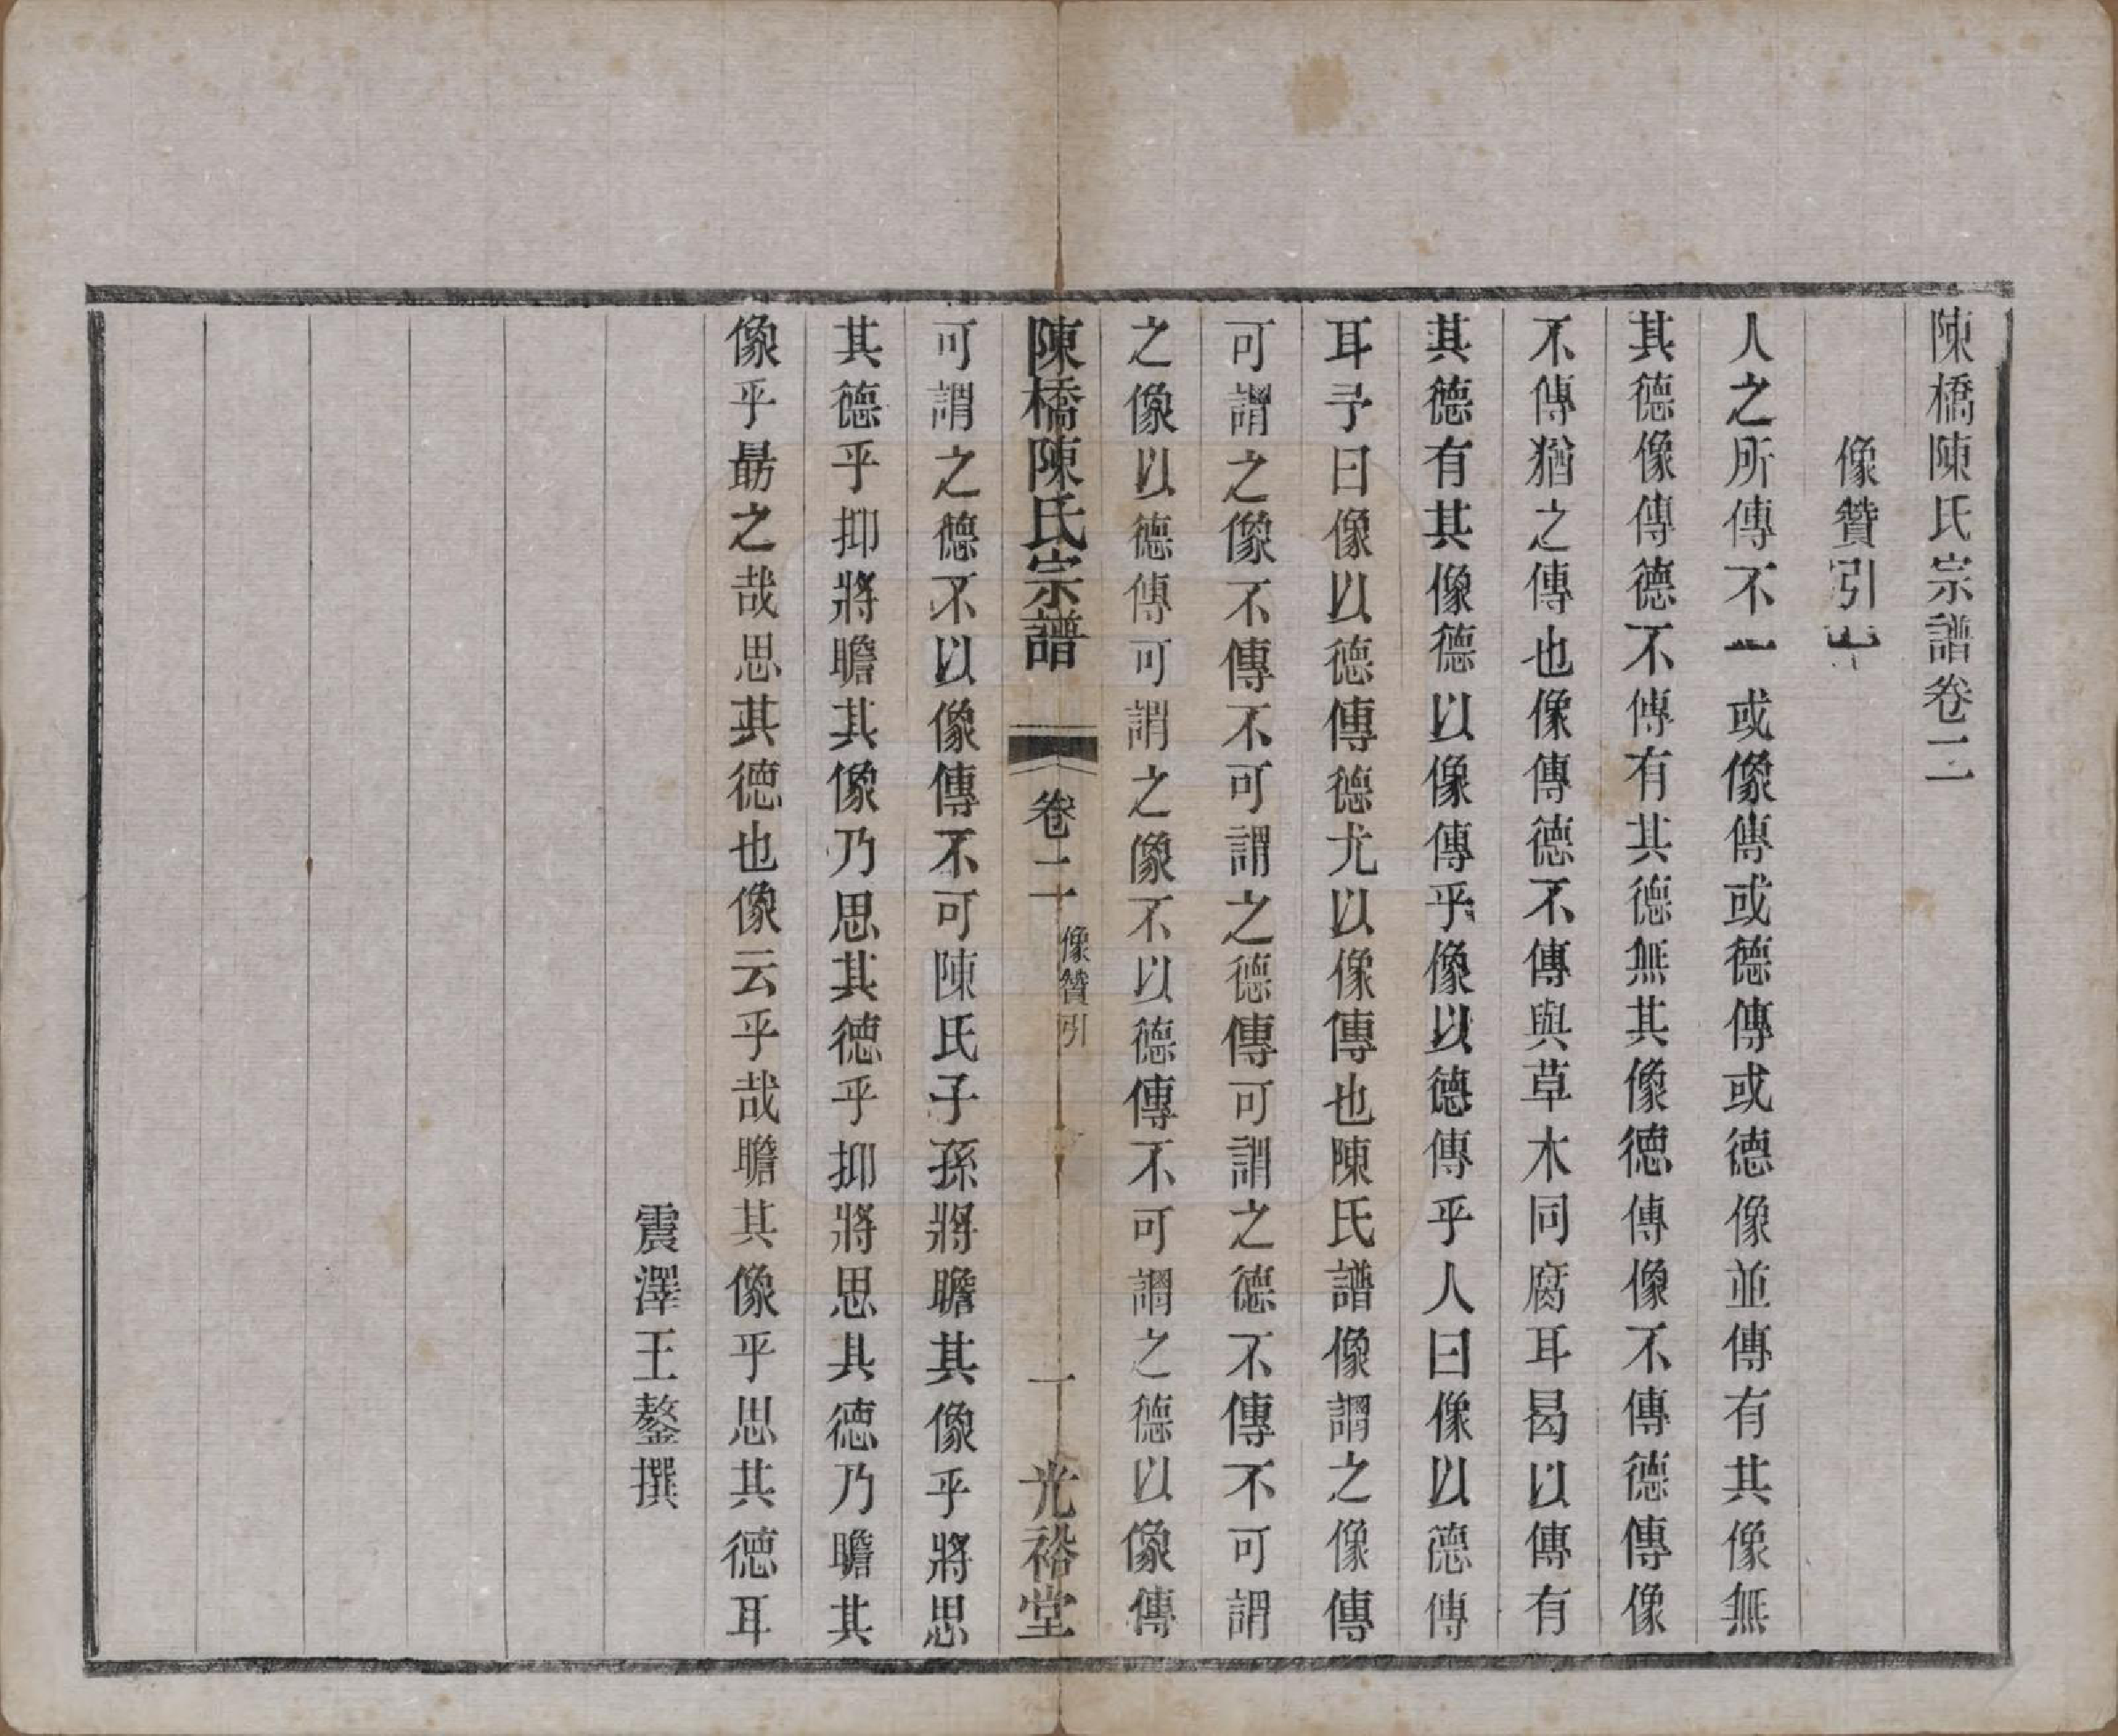 陳橋陳氏宗譜卷二
像贊引
人之所傳不一或像傳或德傳或德像並傳有其像無
其德像傳德不傳有其德無其像德傳像不傳德傳像
不傳猶之傳也像傳德不傳與草木同腐耳曷以傳有
其德有其像德以像傳乎像以德傳乎人曰像以德傳
耳予曰像以德傳德尤以像傳也陳氏譜像謂之像傳
可謂之像不傳不可謂之德傳可謂之德不傳不可謂
之像以德傳可謂之像不以德傳不可謂之德以像傳
陳橋陳氏宗譜 卷二 像贊引 一 光裕堂
可謂之德不以像傳不可陳氏子孫將瞻其像乎將思
其德乎抑將瞻其像乃思其德乎抑將思其德乃瞻其
像乎勗之哉思其德也像云乎哉瞻其像乎思其德耳
震澤王鏊撰